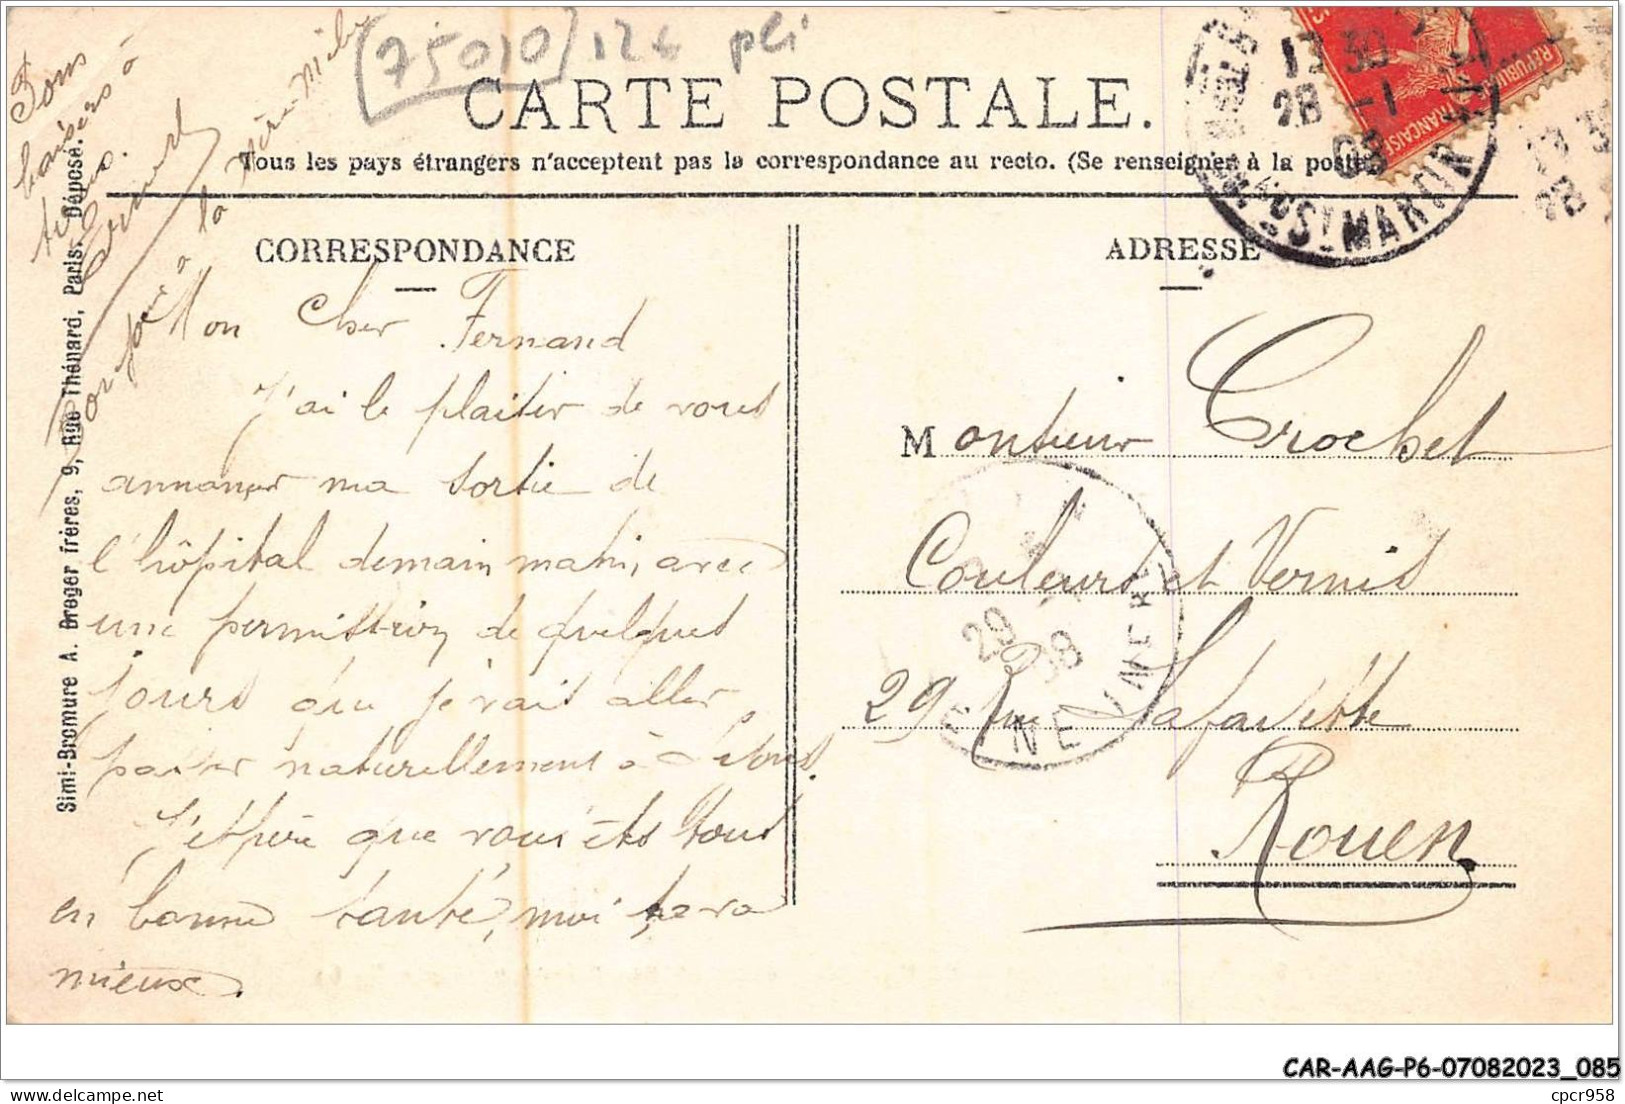 (75010) 12€ pli
CARTE POSTALE.
Tous les pays étrangers n'acceptent pas la correspondance au recto. (Se renseigner à la poste
CORRESPONDANCE
ADRESSE
Bons
baisers à
tous.
Bonjour à la Mère
Mon Cher Fernand
J'ai le plaisir de vous
annoncer ma sortie de
l'hôpital demain matin, avec
une permission de quelques
jours que je vais aller
passer naturellement à
J'espère que vous êtes tous
en bonne santé, moi sava
mieux.
Monsieur Crochet
Couleurs et Vernis
29 Rue Lafayette
Rouen
Simi-Bromure A. Breger frères, 9, Rue Thénard, Paris. Déposé.
REPUBLIQUE FRANCAISE
13 30
28 -1
08
ST MARTIN
13 3
28
29
08
SEINE INFRE
CAR-AAG-P6-07082023_085
cpcr958